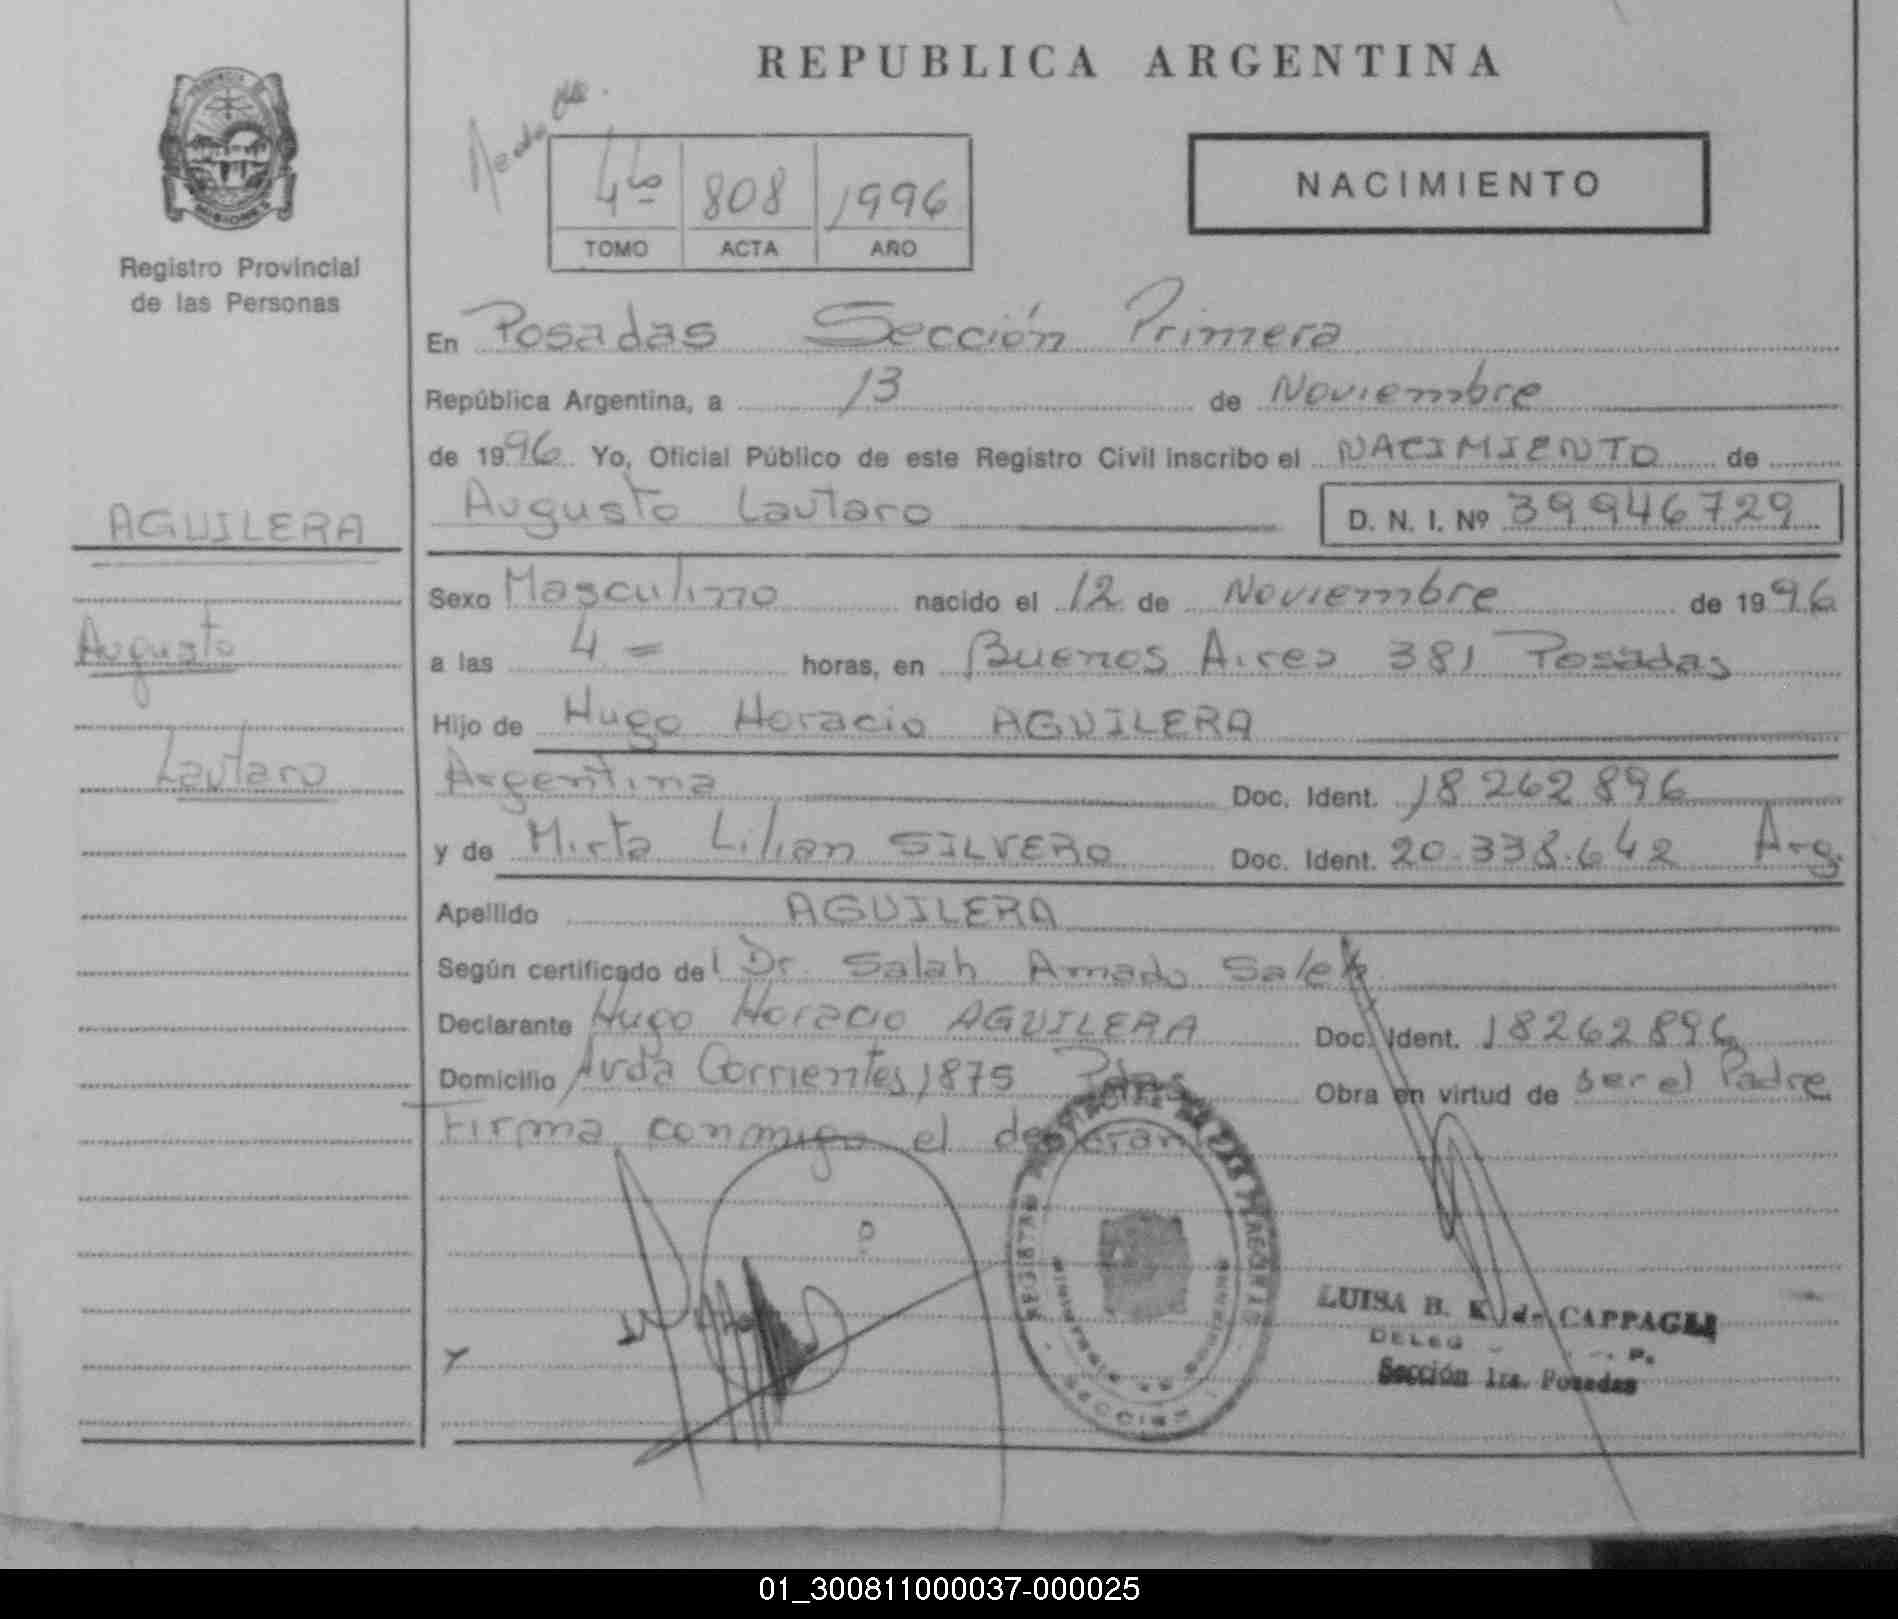 REPUBLICA ARGENTINA
PROVINCIA DE
MISIONES
Registro Provincial
de las Personas
4to 808 1996
TOMO ACTA AÑO
NACIMIENTO
En Posadas Sección Primera
República Argentina, a 13 de Noviembre
de 1996 Yo, Oficial Público de este Registro Civil inscribo el NACIMIENTO de
AGUILERA
Augusto Lautaro D. N. I. Nº 39946729
Sexo Masculino nacido el 12 de Noviembre de 1996
Augusto
a las 4= horas, en Buenos Aires 381 Posadas
Hijo de Hugo Horacio AGUILERA
Lautaro
Argentina Doc. Ident. 18262896
y de Mirta Lilian SILVERO Doc. Ident. 20.338.642 Arg.
Apellido AGUILERA
Según certificado del Dr. Salah Amado Saleh
Declarante Hugo Horacio AGUILERA Doc. Ident. 18262896
Domicilio Avda Corrientes 1875 Pdas Obra en virtud de ser el Padre
Firma conmigo el declarante
LUISA B. K. de CAPPAGLI
DELEG
Sección 1ra. Posadas
01_300811000037-000025